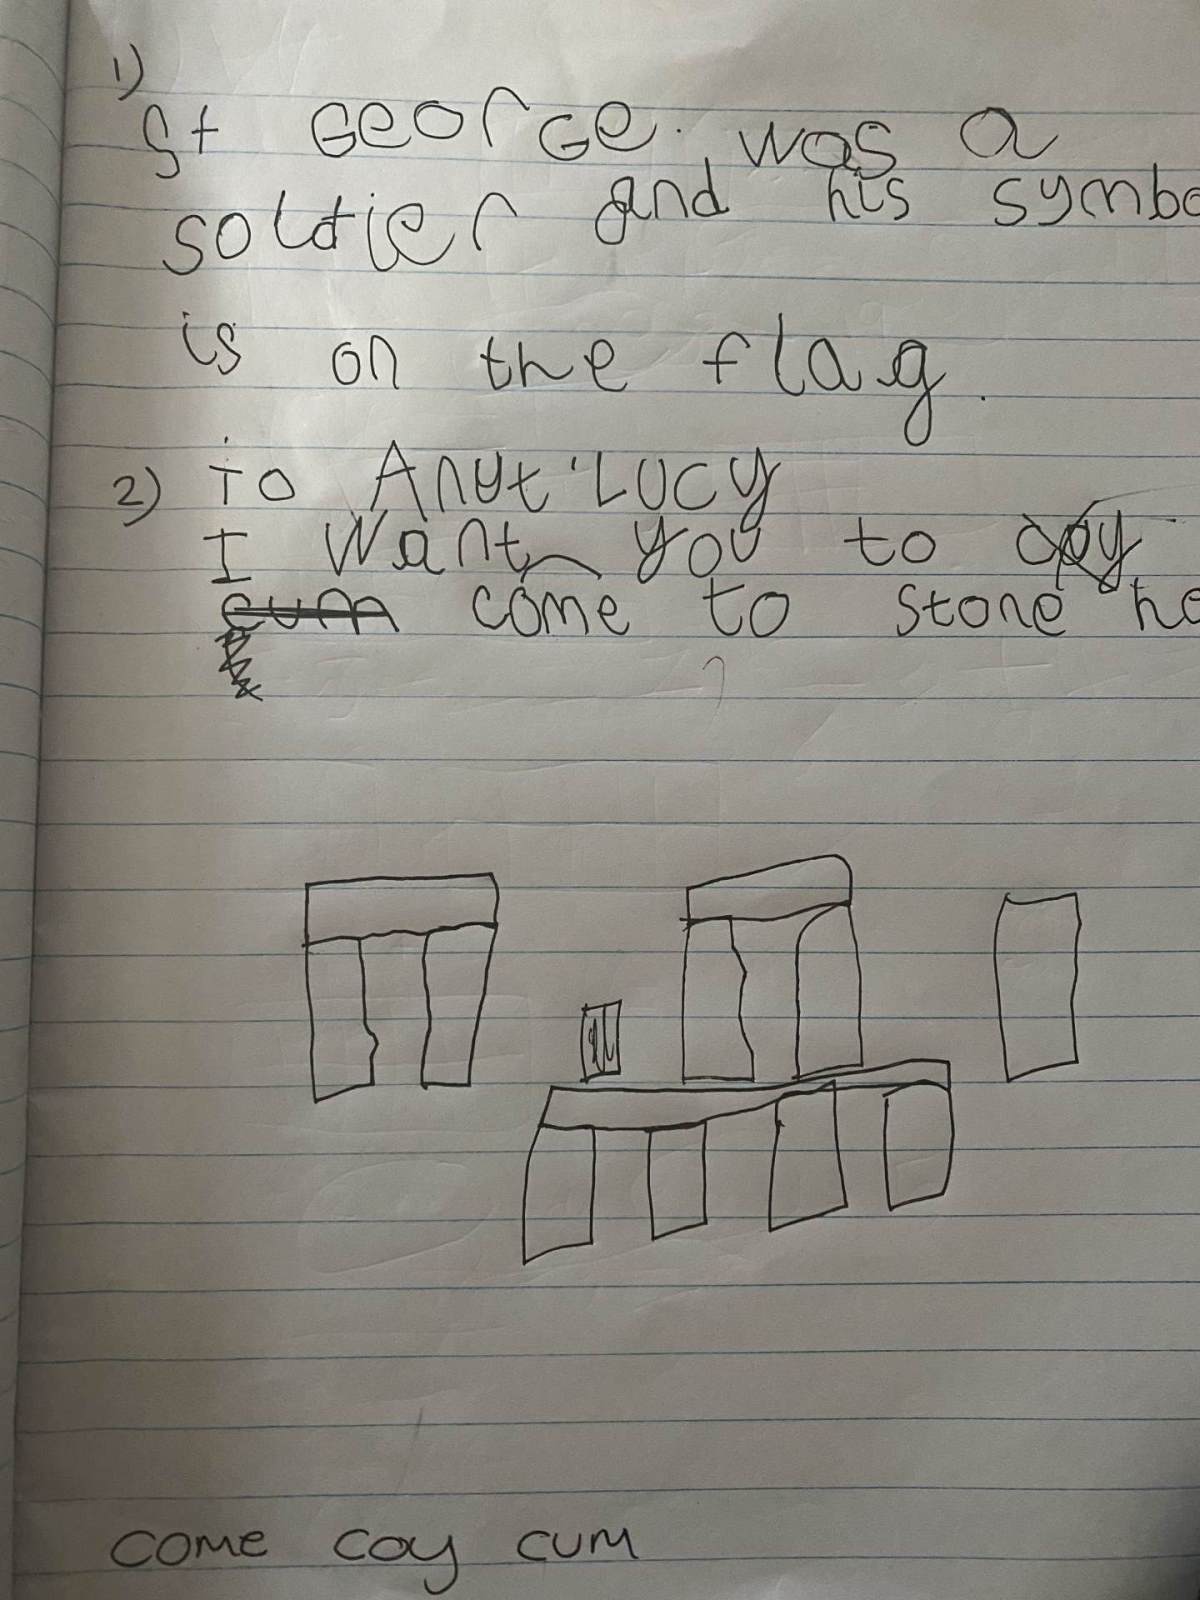 1)
St George was a
soldier and his symbo
is on the flag.
2) To Anut Lucy
I Want you to coy
cum come to stone he
come coy cum